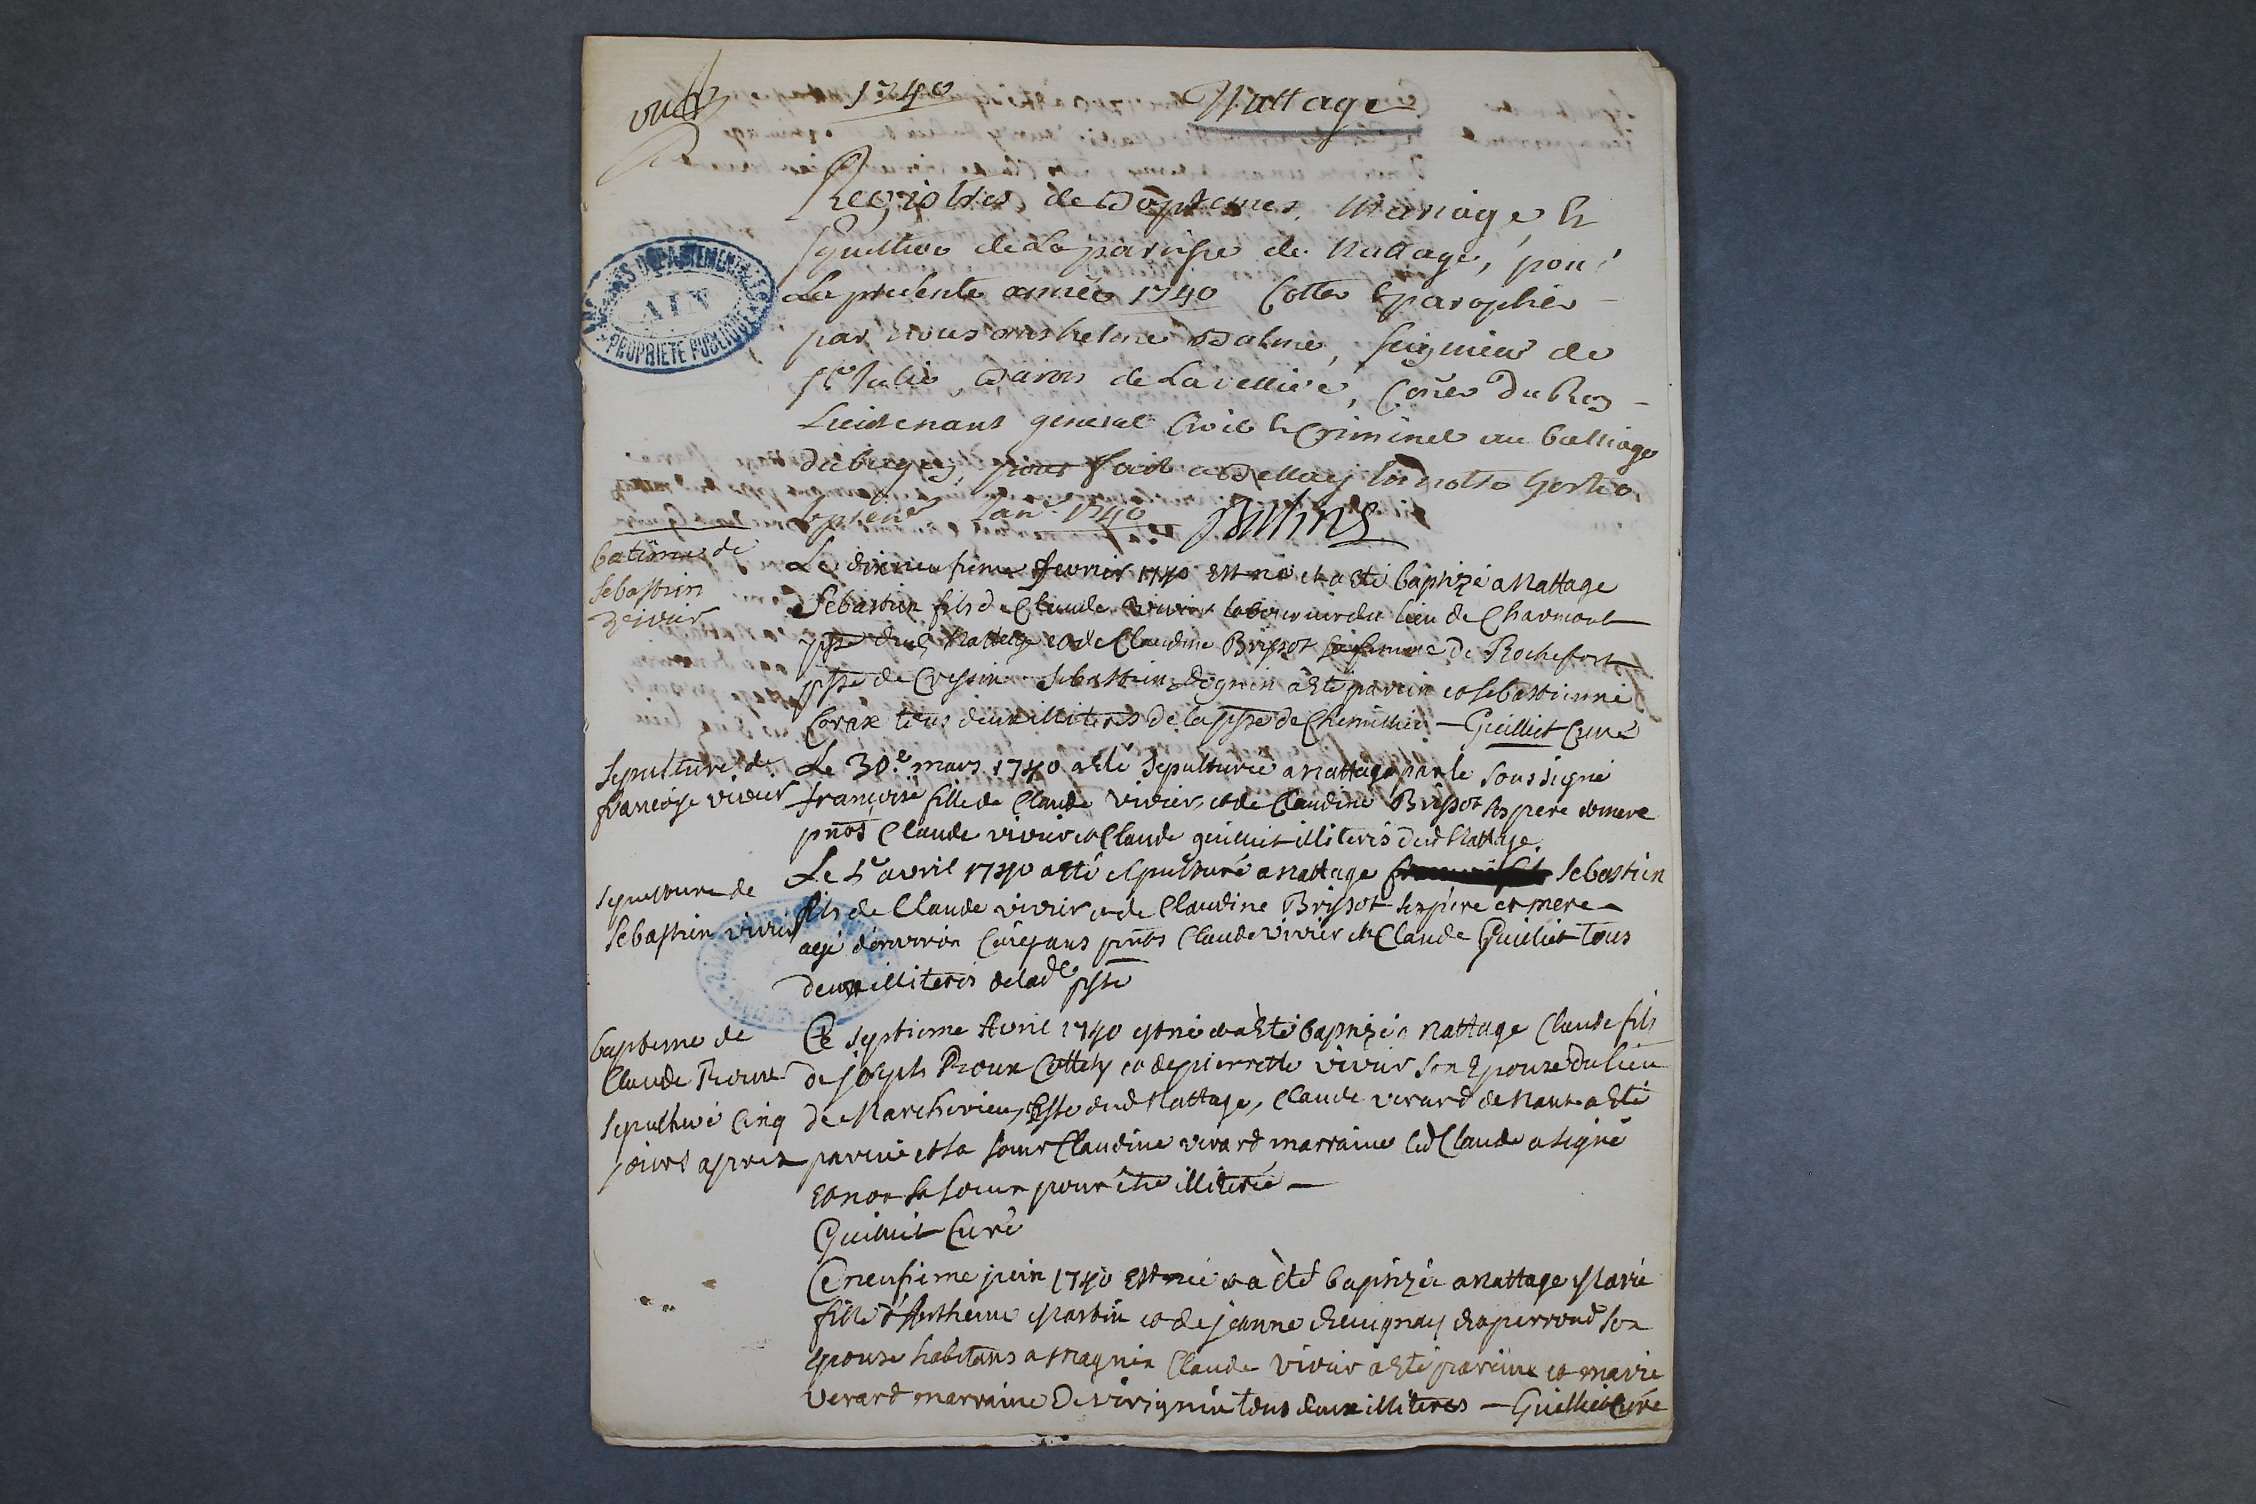 1740
Nattage
Registres de Baptemes, Mariage Et
sepulture de La parroisse de Nattage, pour
La presente année 1740 Cottes & paraphés
par nous anthelme Balme, seigneur de
Ste Julie, Baron de La velliere, Coner Du Roy
Lieutenant general Civil & Criminel au balliage
dubugey, fait a Bellay En notre hostel
ARCHIVES DEPARTEMENTALES
AIN
PROPRIETE PUBLIQUE
Janr 1740 Balme
batême de
sebastien
vivier
Le dixneufieme fevrier 1740 Est né et a Eté baptizé a Nattage
Sebastien fils de Claude vivier laboureur du lieu de Charmont
psse dud Nattage et de Claudine Brissot sa femme de Rochefort
psse de Cressin. Sebastien Dognin a Eté parein et Sebastienne
Corax tous deux illiteres de la psse de Chemillieu - Guilliet Curé
Sepulture de
francoise vivier
Le 30e mars 1740 a Eté Sepulturée a Nattage par le Soussigné
francoise fille de Claude Vivier, et de Claudine Brissot ses pere et mere
pnts Claude vivier et Claude guilliet illiterés dud Nattage.
sepulture de
Sebastien vivier
Le 5e avril 1740 a Eté sepulturé a Nattage Sebastien
fils de Claude vivier et de Claudine Brissot ses pere et mere
agé d'environ Cinq ans pnts Claude Vivier et Claude Guilliet tous
deux illiterés de lade psse
baptême de
Claude Roux
sepulturé Cinq
jours apres
Ce septieme Avril 1740 est né et a Eté baptizé a Nattage Claude fils
de joseph Roux Collety et de pierrette vivier son Epouse du lieu
de Marchevieu, psse dud Nattage, Claude verard de Nant a Eté
parein et sa soeur Claudine verard marraine led Claude a signé
et non sa soeur pour être illiterée -
Guilliet Curé
Ce neufieme juin 1740 Est née et a été baptizée a Nattage Marie
fille d'Anthelme Martin et de jeanne son
epouse habitans a Magnin Claude Vivier a Eté pareinx et marie
verard marraine De virignin tous deux illiteres - Guilliet Curé